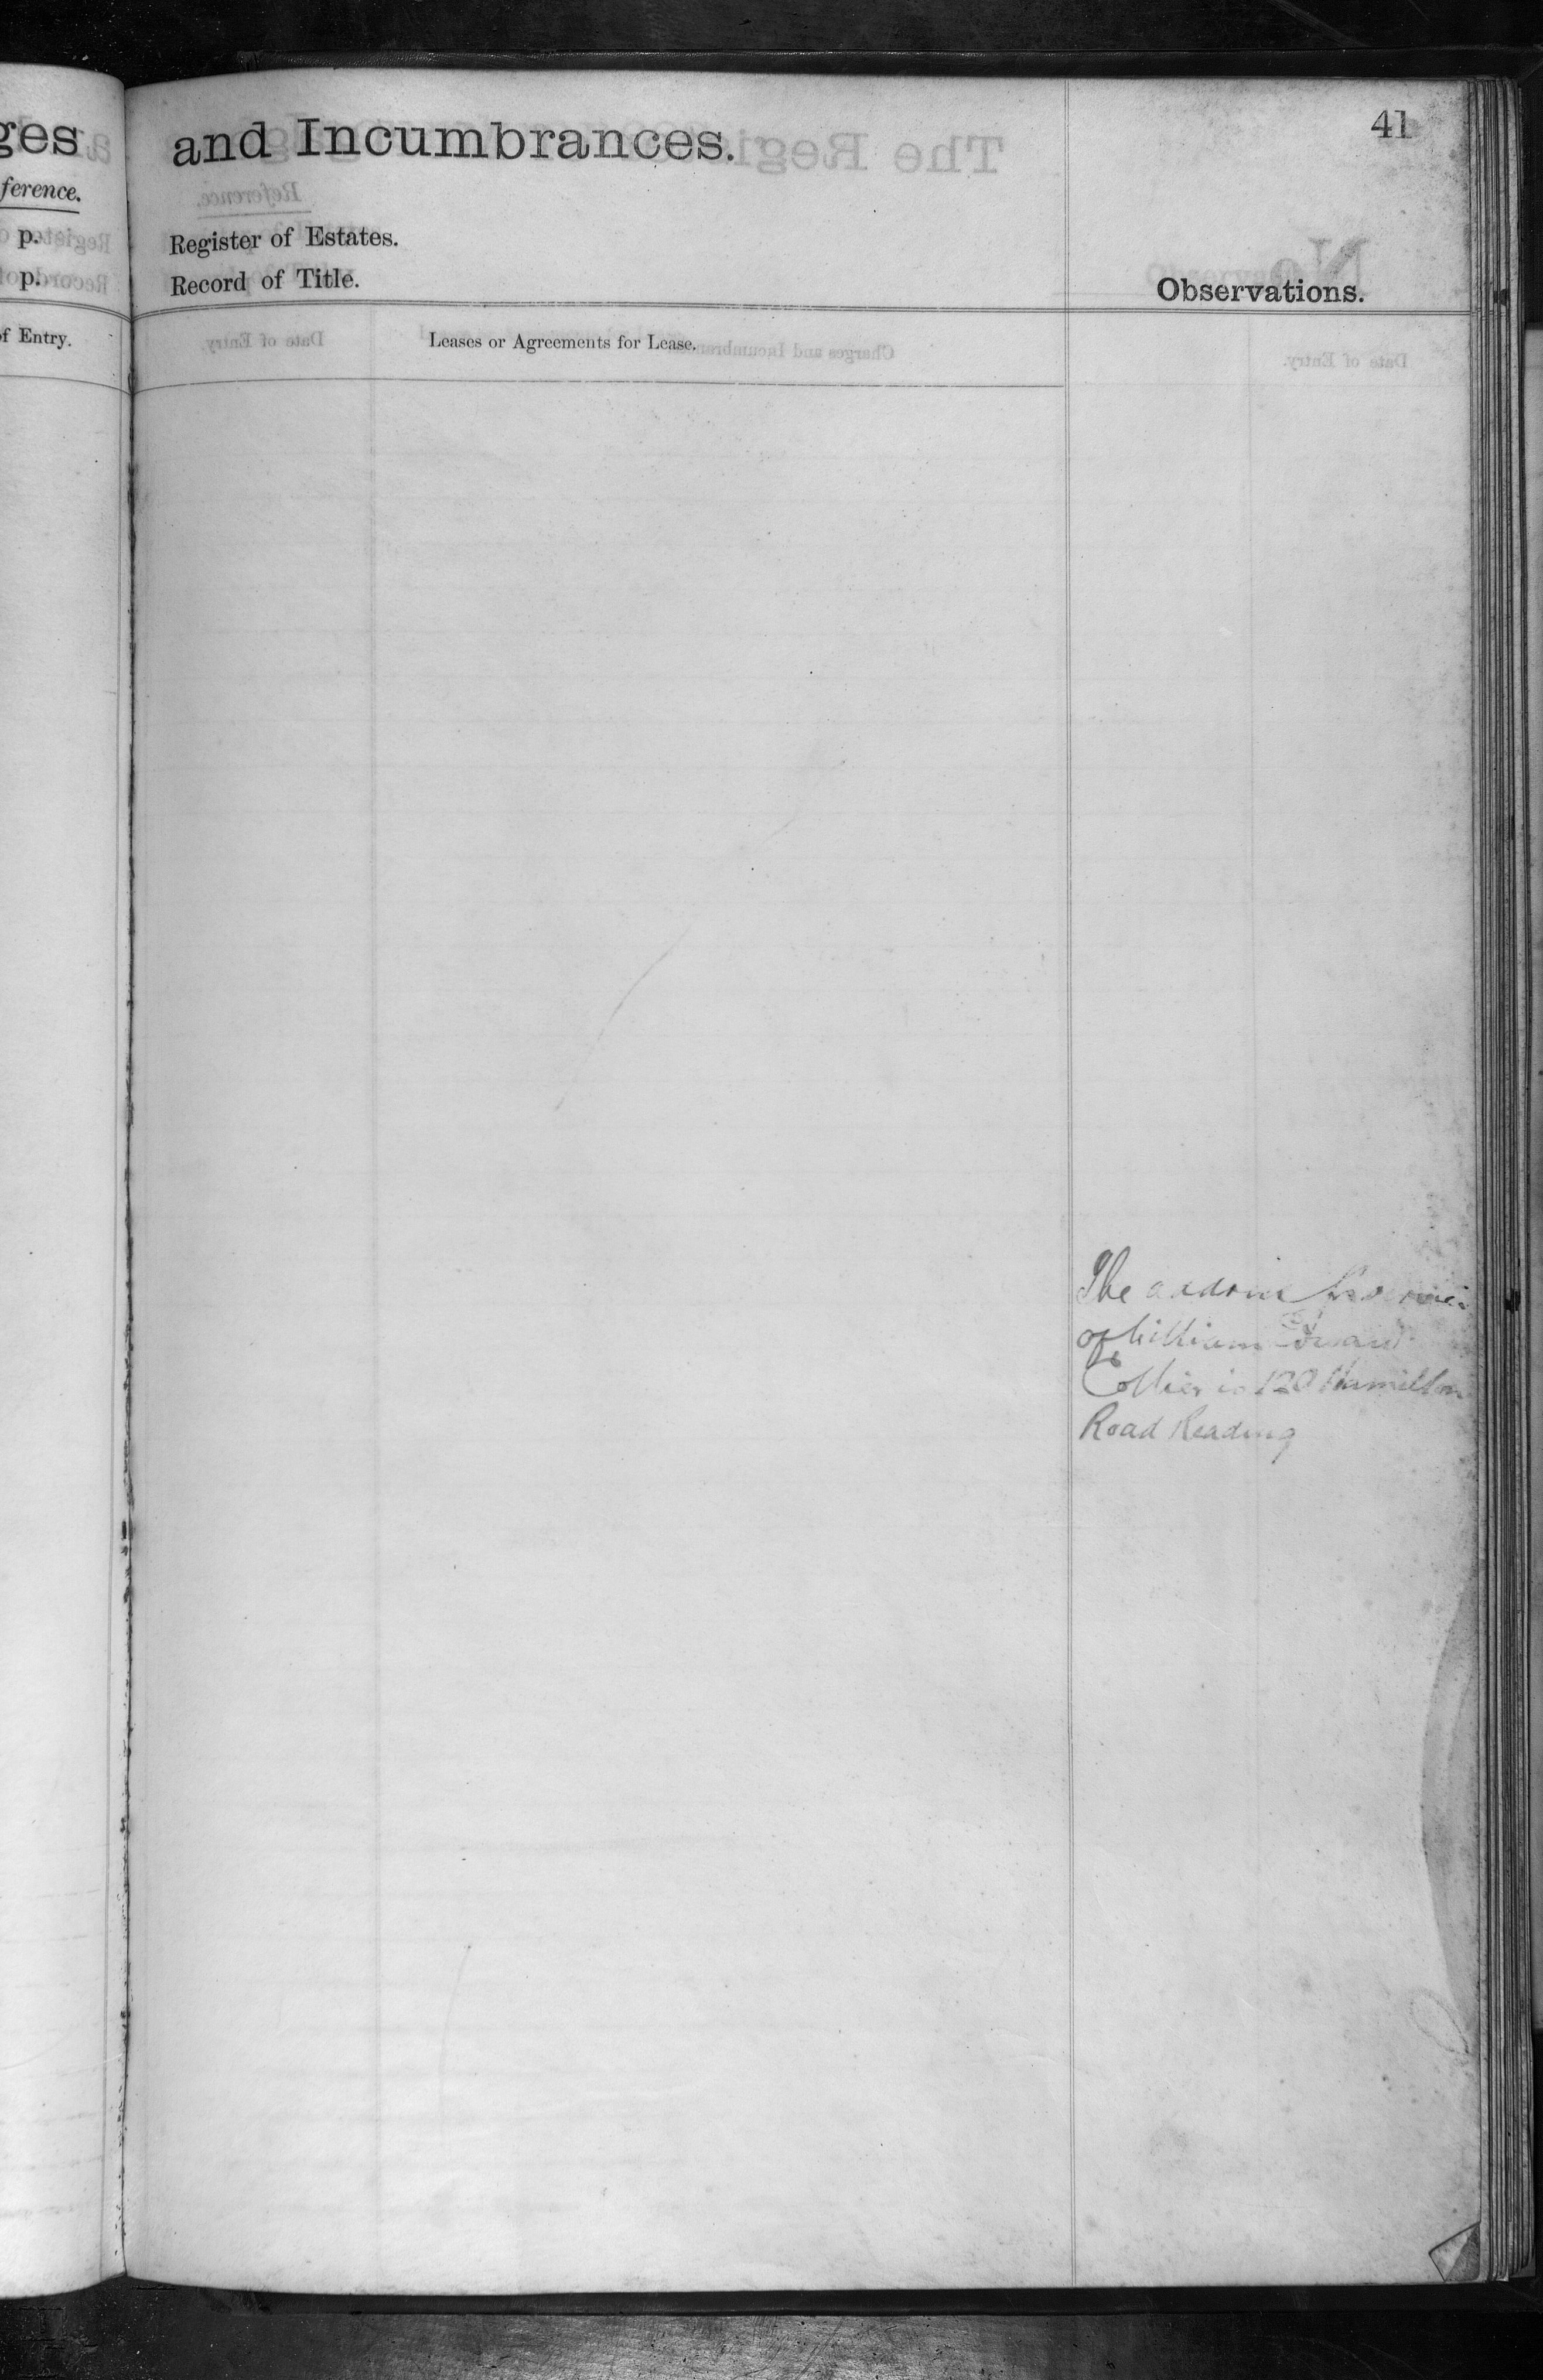 ges
ference.
p.
p.
of Entry.
41
and Incumbrances.
Register of Estates.
Record of Title.
Observations.
Leases or Agreements for Lease.
The
of William Edward
Collier is 120 Hamilton
Road Reading